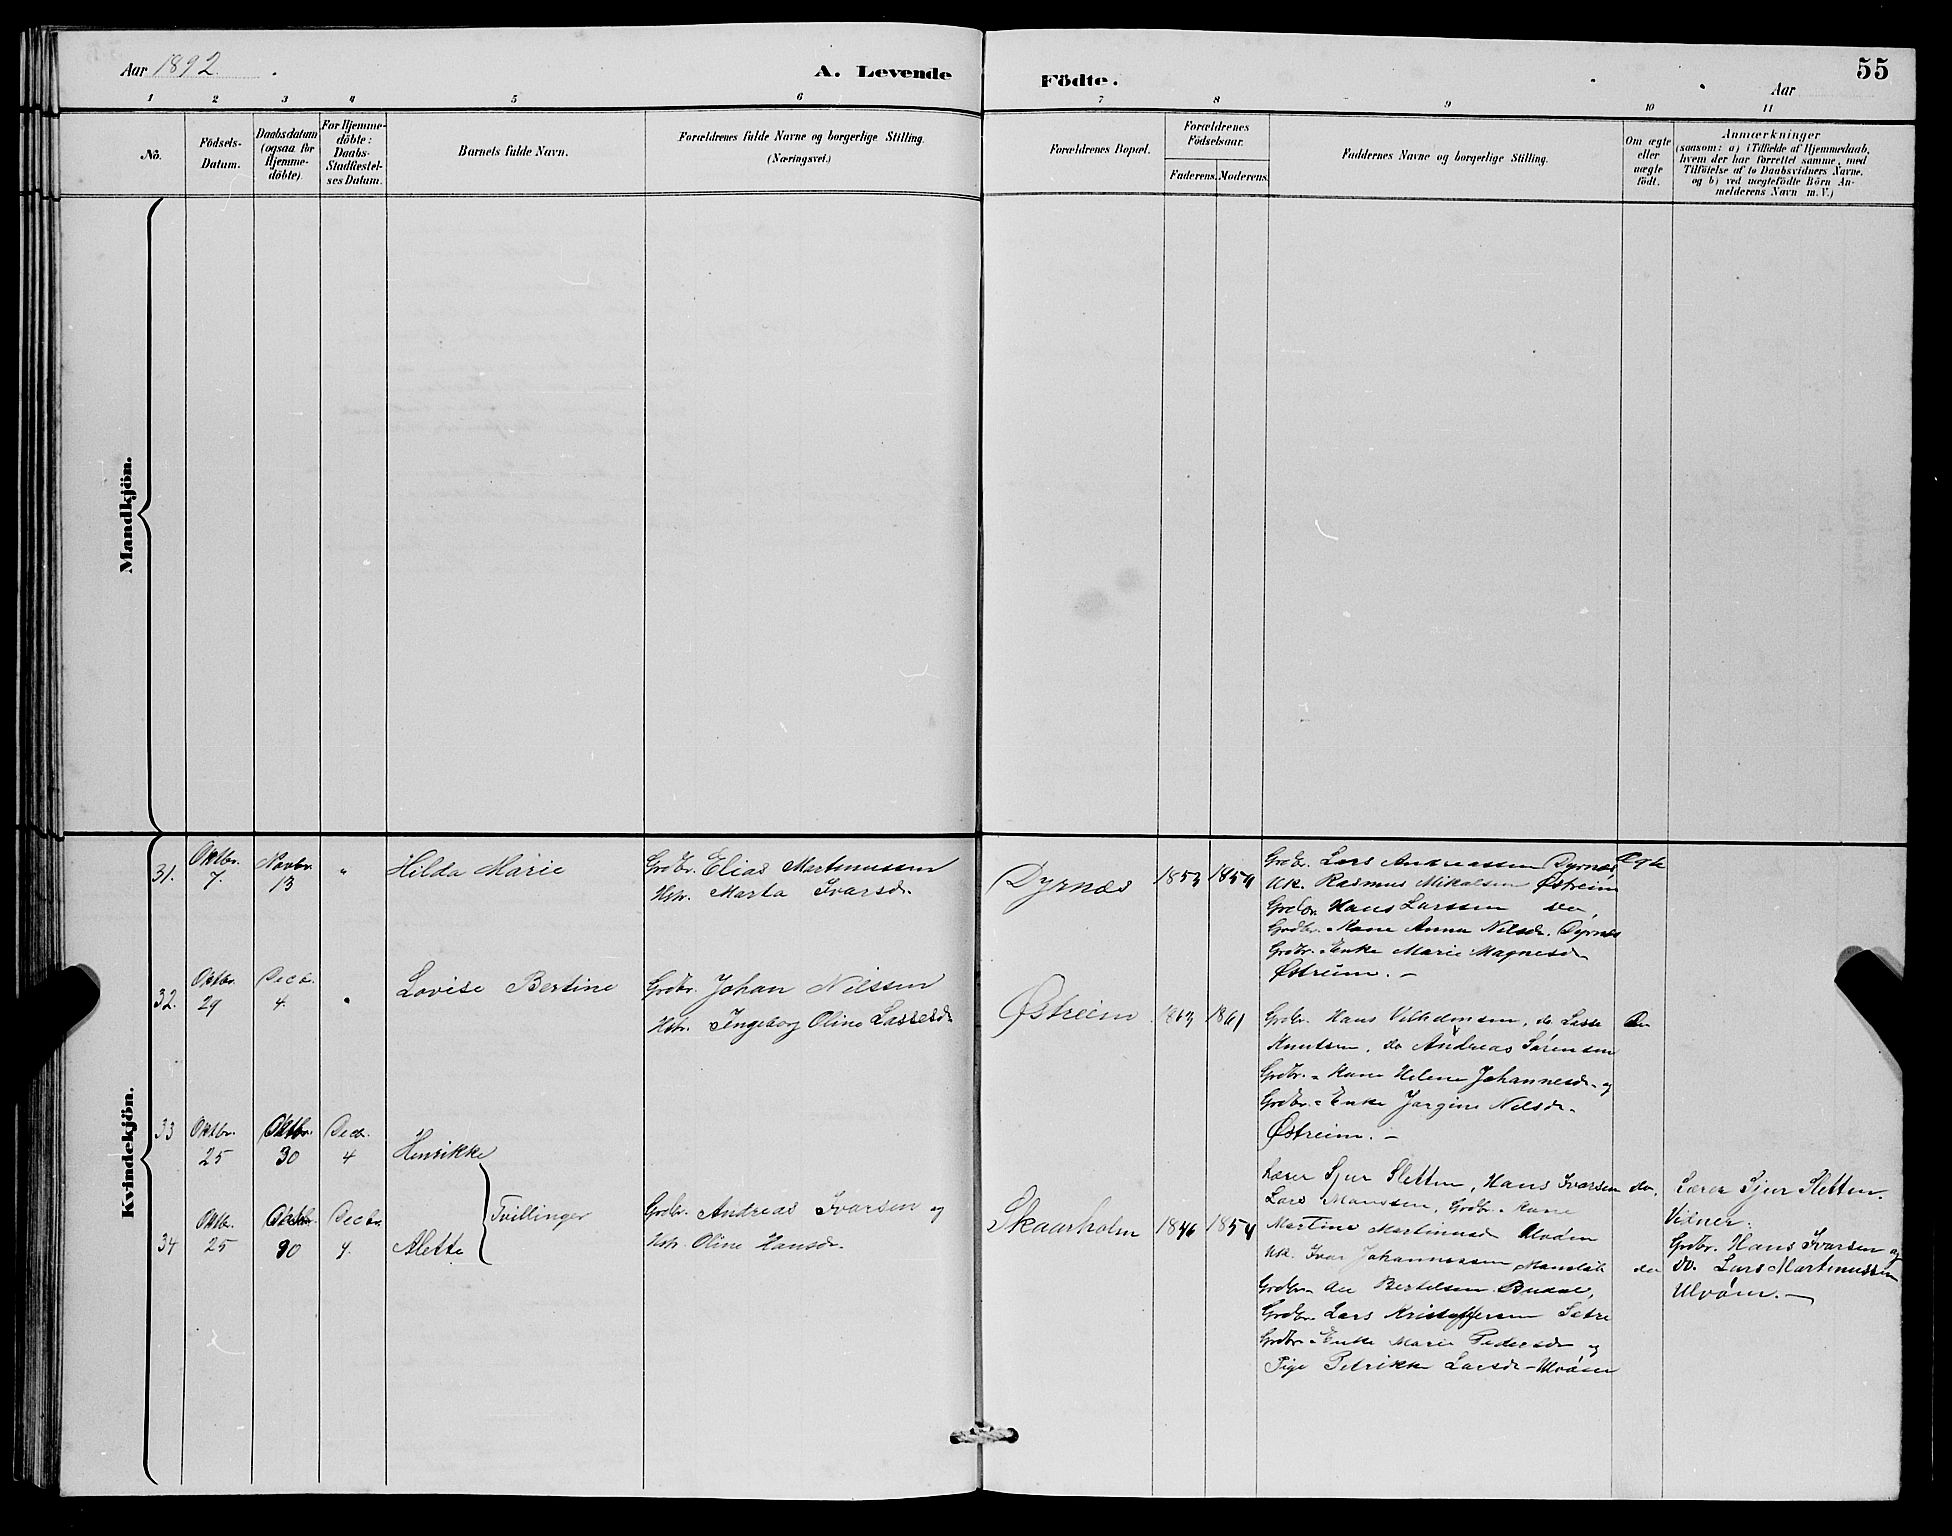 Aar 1892.
A. Levende
Födte.
Aar
55
1 2 3 4 5 6 7 8 9 10 11
No.
Födsels-
Datum.
Daabsdatum
(ogsaa for
Hjemme-
döbte).
For Hjemme-
döbte:
Daabs-
Stadfæstel-
ses Datum.
Barnets fulde Navn.
Forældrenes fulde Navne og borgerlige Stilling.
(Næringsvei.)
Forældrenes Bopæl.
Forældrenes
Födselsaar.
Faderens. Moderens.
Faddernes Navne og borgerlige Stilling.
Om ægte
eller
uægte
födt.
Anmærkninger
(saasom: a) i Tilfælde af Hjemmedaab,
hvem der har forrettet samme, med
Tilföielse af to Daabsvidners Navne,
og b) ved uægtefödte Börn An-
melderens Navn m. V.)
Mandkjön.
Kvindekjön.
31.
Oktbr.
7.
Novbr.
13
"
Hilda Marie
Grdbr. Elias Martinussen
Hstr. Marta Ivarsdr.
Dyrnæs
1853 1854
Grdbr. Lars Andreassen Dyrnæs
Uk. Rasmus Mikalsen Østreim
Grdbr. Hans Larssen do,
Grdbr. Kone Anna Nilsdr. Dyrnæs
Grdbr. Enke Marie Magnesdr
Østreim. –
Ægte
32.
Oktbr.
29
Decbr.
4.
"
Lovise Bertine
Grdbr. Johan Nilssen
Hstr. Ingeborg Oline Lassesdr
Østreim
1863 1861
Grdbr. Hans Vilhelmsen, do Lasse
Knutsen, do Andreas Sørensen
Grdbr. Kone Helene Johannesdr. og
Grdbr. Enke Jørgine Nilsdr.
Østreim. –
Do
33
Oktbr.
25
Oktbr.
30
Decbr.
4
Henrikke
34
Oktbr.
25
Oktbr.
30
Decbr.
4.
Alette
Tvillinger
Grdbr. Andreas Ivarsen og
Hstr. Oline Hansdr.
Skaarholm
1846 1854
Lærer Sjur Sletten, Hans Ivarsen
Lars Grdbr. Kone
Martine Martinusd
Uk. Ivar Johannessen
Grdbr. Bertelsen
Grdbr. Lars Kristoffersen Sætre
Grdbr. Enke Marie Pedersdr og
Pige Petrikke Larsdr – Ulvøen
do.
do
Lærer Sjur Sletten.
Vidner:
Grdbr. Hans Ivarsen og
do. Lars Martinussen
Ulvøen. –